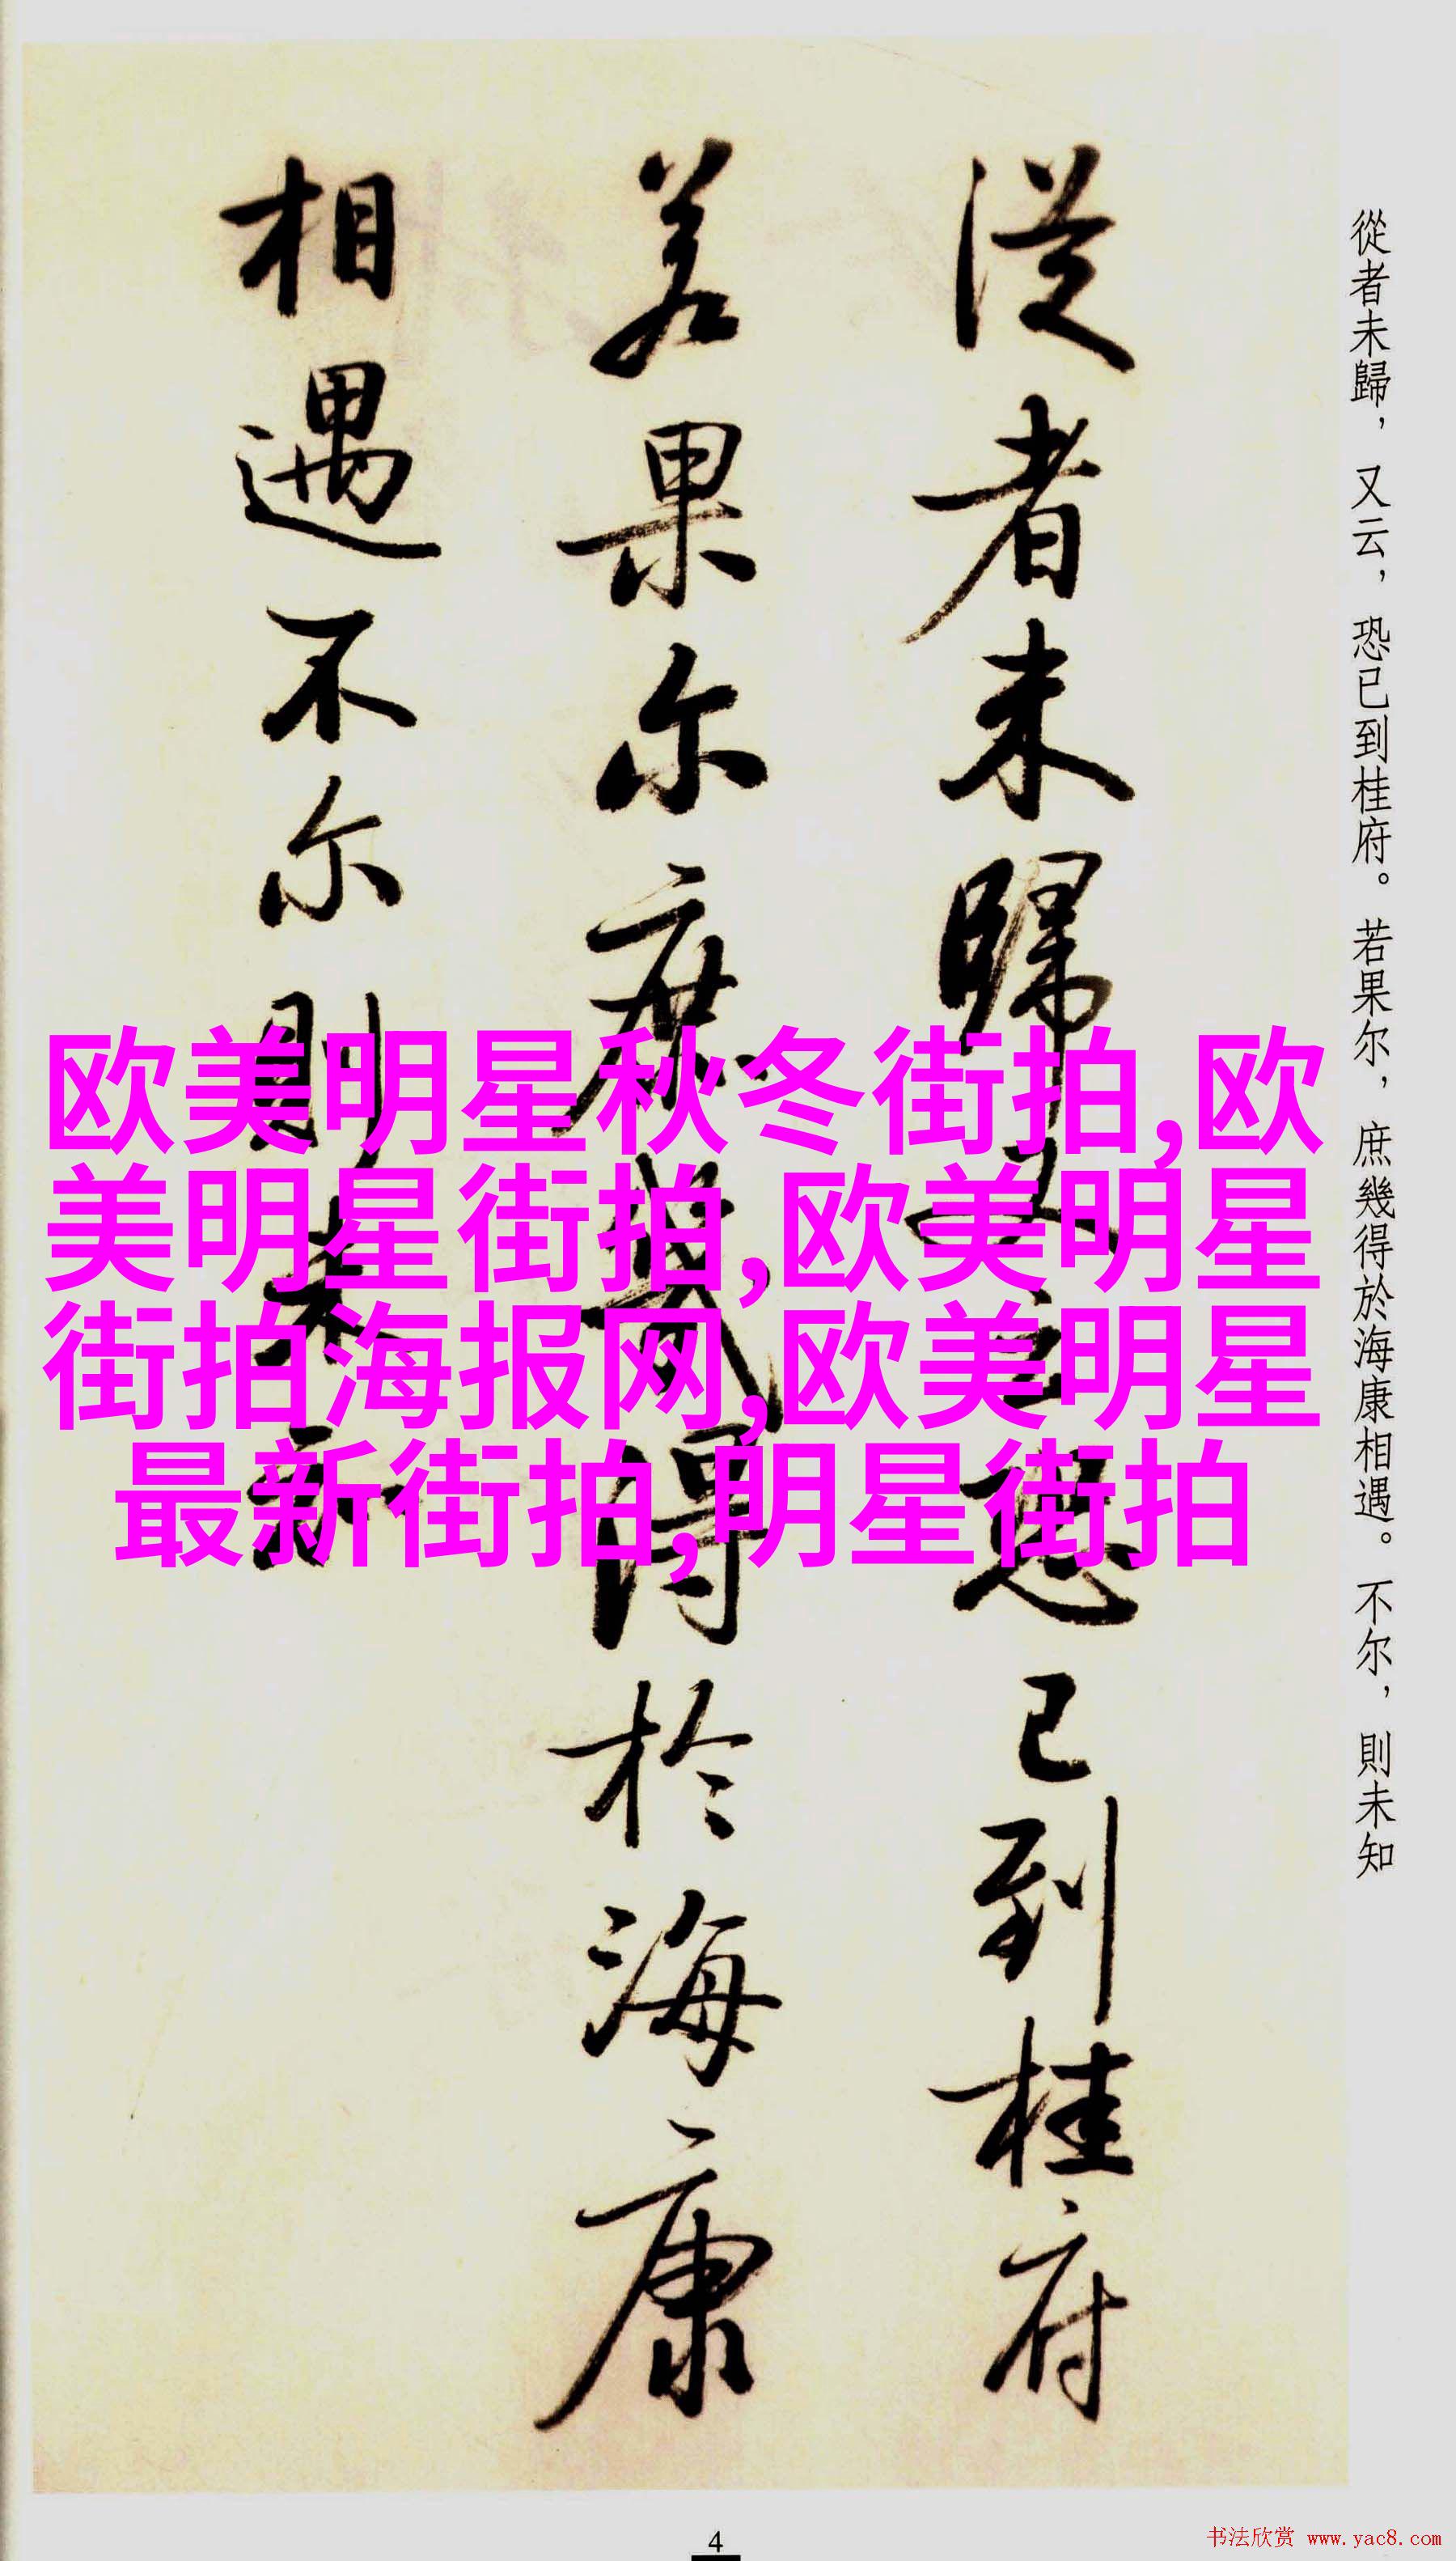 從者未歸，又云，恐已到桂府。若果尔，庶幾得於海康相遇。不尔，則未知
従者未歸又云恐已到桂府
若果尔庶幾得於海康
相遇不尔則未知
欧美明星秋冬街拍,欧
美明星街拍,欧美明星
街拍海报网,欧美明星
最新街拍,明星街拍
4
书法欣赏 www.yac8.com